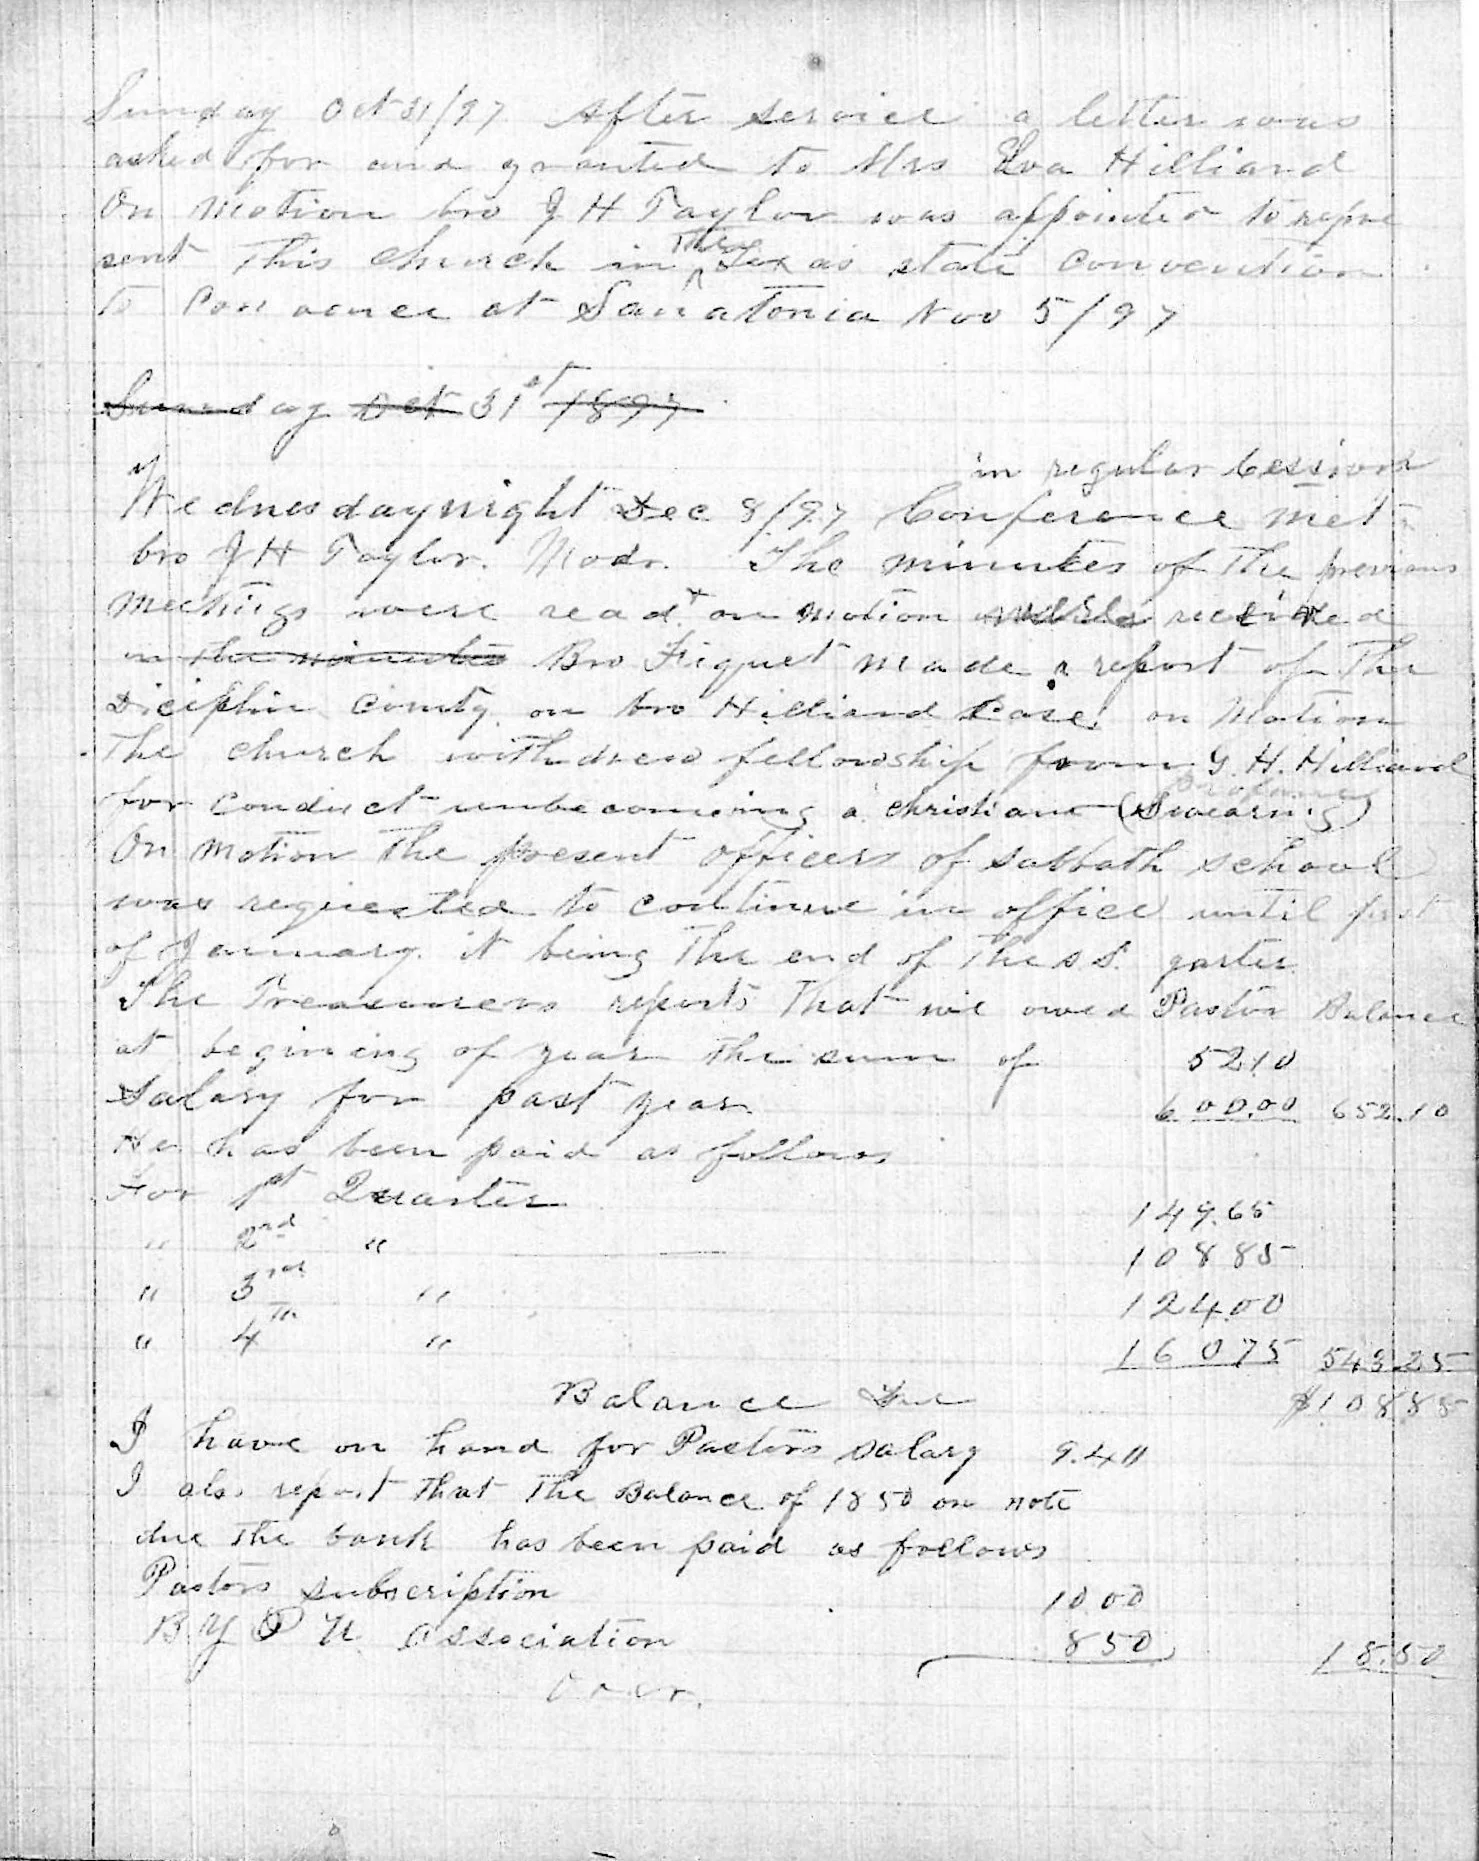 Sunday Oct 31/97 After service a letter was
asked for and granted to Mrs Eva Hilliard
On Motion bro J H Taylor was appointed to repre
sent This Church in The Texas state convention
to Convence at San antonia Nov 5/97
Sunday Oct 31st 1897
in regular Session
Wednesday night Dec 8/97 Conference met
bro J H Taylor. Modr. The minutes of The previous
Meetings were read & on motion received
on the minutes Bro Fiquet made a report of The
Diciplin Comty. on bro Hilliard Case. on Motion
The Church withdrew fellowship from G. H. Hilliard
Profane
for conduct unbecomeing a christian (Swearing)
On Motion The present officers of sabbath school
was requested to continue in office until first
of January. it being The end of The S S. qarter
The Treasurers reports That we owed Pastor Balance
at begining of year The sum of 52.10
Salary for past year 600.00 652.10
He has been paid as follows
For 1st Quarter 149.65
" 2nd " 108 85
" 3rd " 124.00
" 4th " 160 75 543 25
Balance Due $108 85
I have on hand for Pastors salary 9.40
I also report That The Balance of 18 50 on note
due The bank has been paid as follows
Pastors subscription 10 00
B. Y P U. Association 8 50 18.50
over.